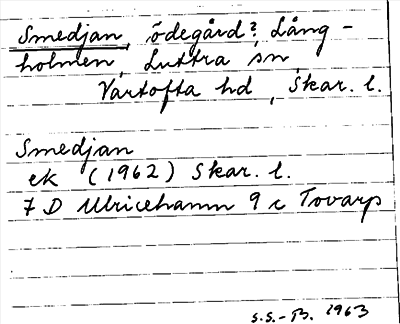 Smedjan, ödegård? Lång-
holmen, Luttra sn,
Vartofta hd, Skar. l.
Smedjan
ek (1962) Skar. l.
7 D Ulricehamn 9 c Tovarp
S.S.-B. 1963